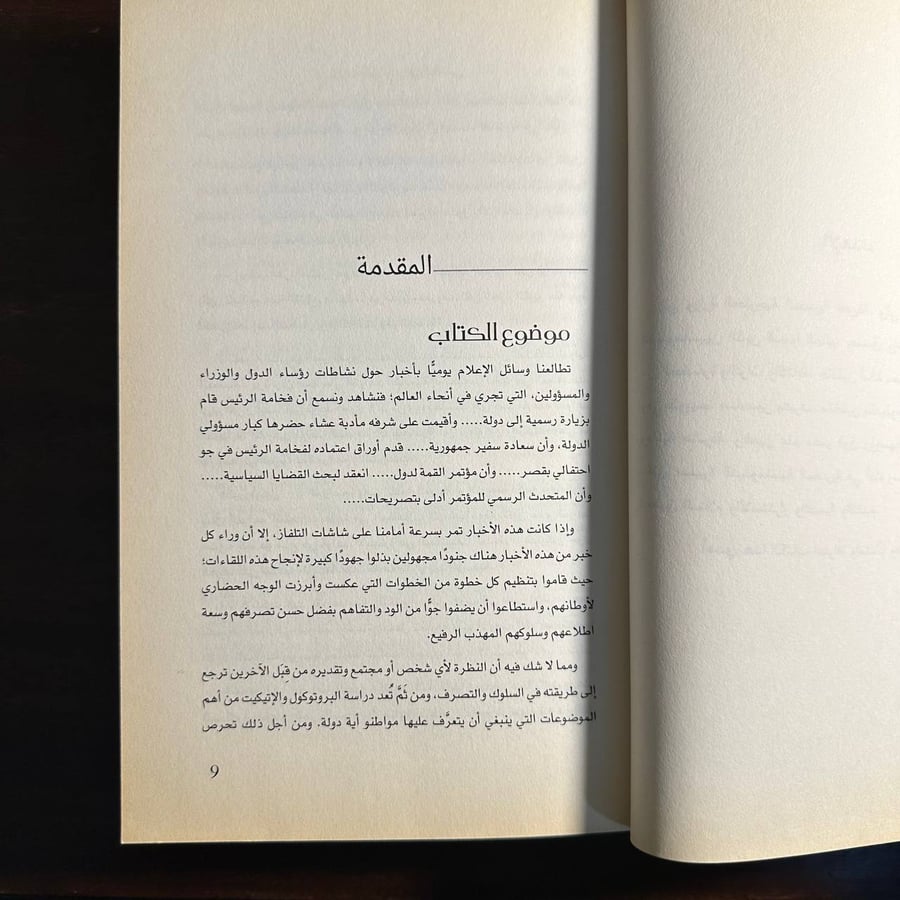 المقدمة
موضوع الكتاب
تطالعنا وسائل الإعلام يوميًّا بأخبار حول نشاطات رؤساء الدول والوزراء
والمسؤولين، التي تجري في أنحاء العالم؛ فنشاهد ونسمع أن فخامة الرئيس قام
بزيارة رسمية إلى دولة..... وأقيمت على شرفه مأدبة عشاء حضرها كبار مسؤولي
الدولة، وأن سعادة سفير جمهورية..... قدم أوراق اعتماده لفخامة الرئيس في جو
احتفالي بقصر..... وأن مؤتمر القمة لدول..... انعقد لبحث القضايا السياسية.....
وأن المتحدث الرسمي للمؤتمر أدلى بتصريحات.....
وإذا كانت هذه الأخبار تمر بسرعة أمامنا على شاشات التلفاز، إلا أن وراء كل
خبر من هذه الأخبار هناك جنودًا مجهولين بذلوا جهودًا كبيرة لإنجاح هذه اللقاءات؛
حيث قاموا بتنظيم كل خطوة من الخطوات التي عكست وأبرزت الوجه الحضاري
لأوطانهم، واستطاعوا أن يضفوا جوًّا من الود والتفاهم بفضل حسن تصرفهم وسعة
اطلاعهم وسلوكهم المهذب الرفيع.
ومما لا شك فيه أن النظرة لأي شخص أو مجتمع وتقديره من قِبَل الآخرين ترجع
إلى طريقته في السلوك والتصرف، ومن ثَمَّ تُعد دراسة البروتوكول والإتيكيت من أهم
الموضوعات التي ينبغي أن يتعرَّف عليها مواطنو أية دولة. ومن أجل ذلك تحرص
9